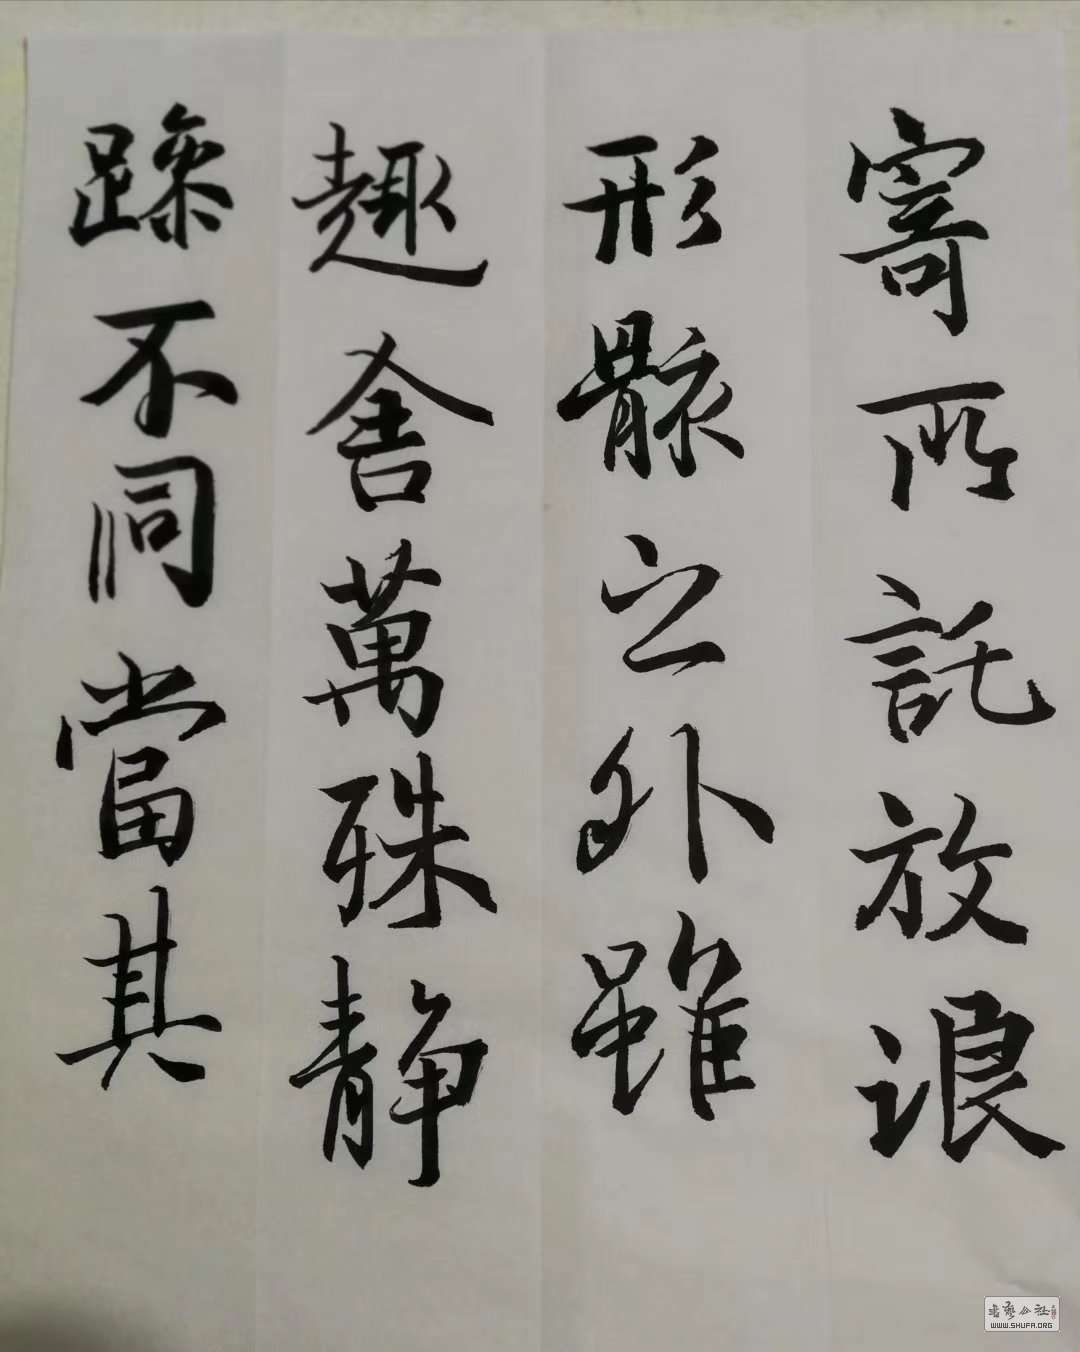 寄所託放浪
形骸之外雖
趣舍萬殊静
躁不同當其
書藝公社
WWW.SHUFA.ORG